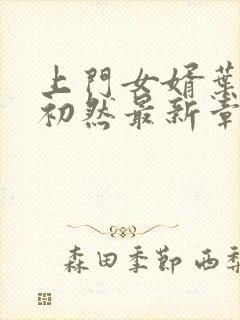 上門女婿葉
初然最新章
森田季節 西